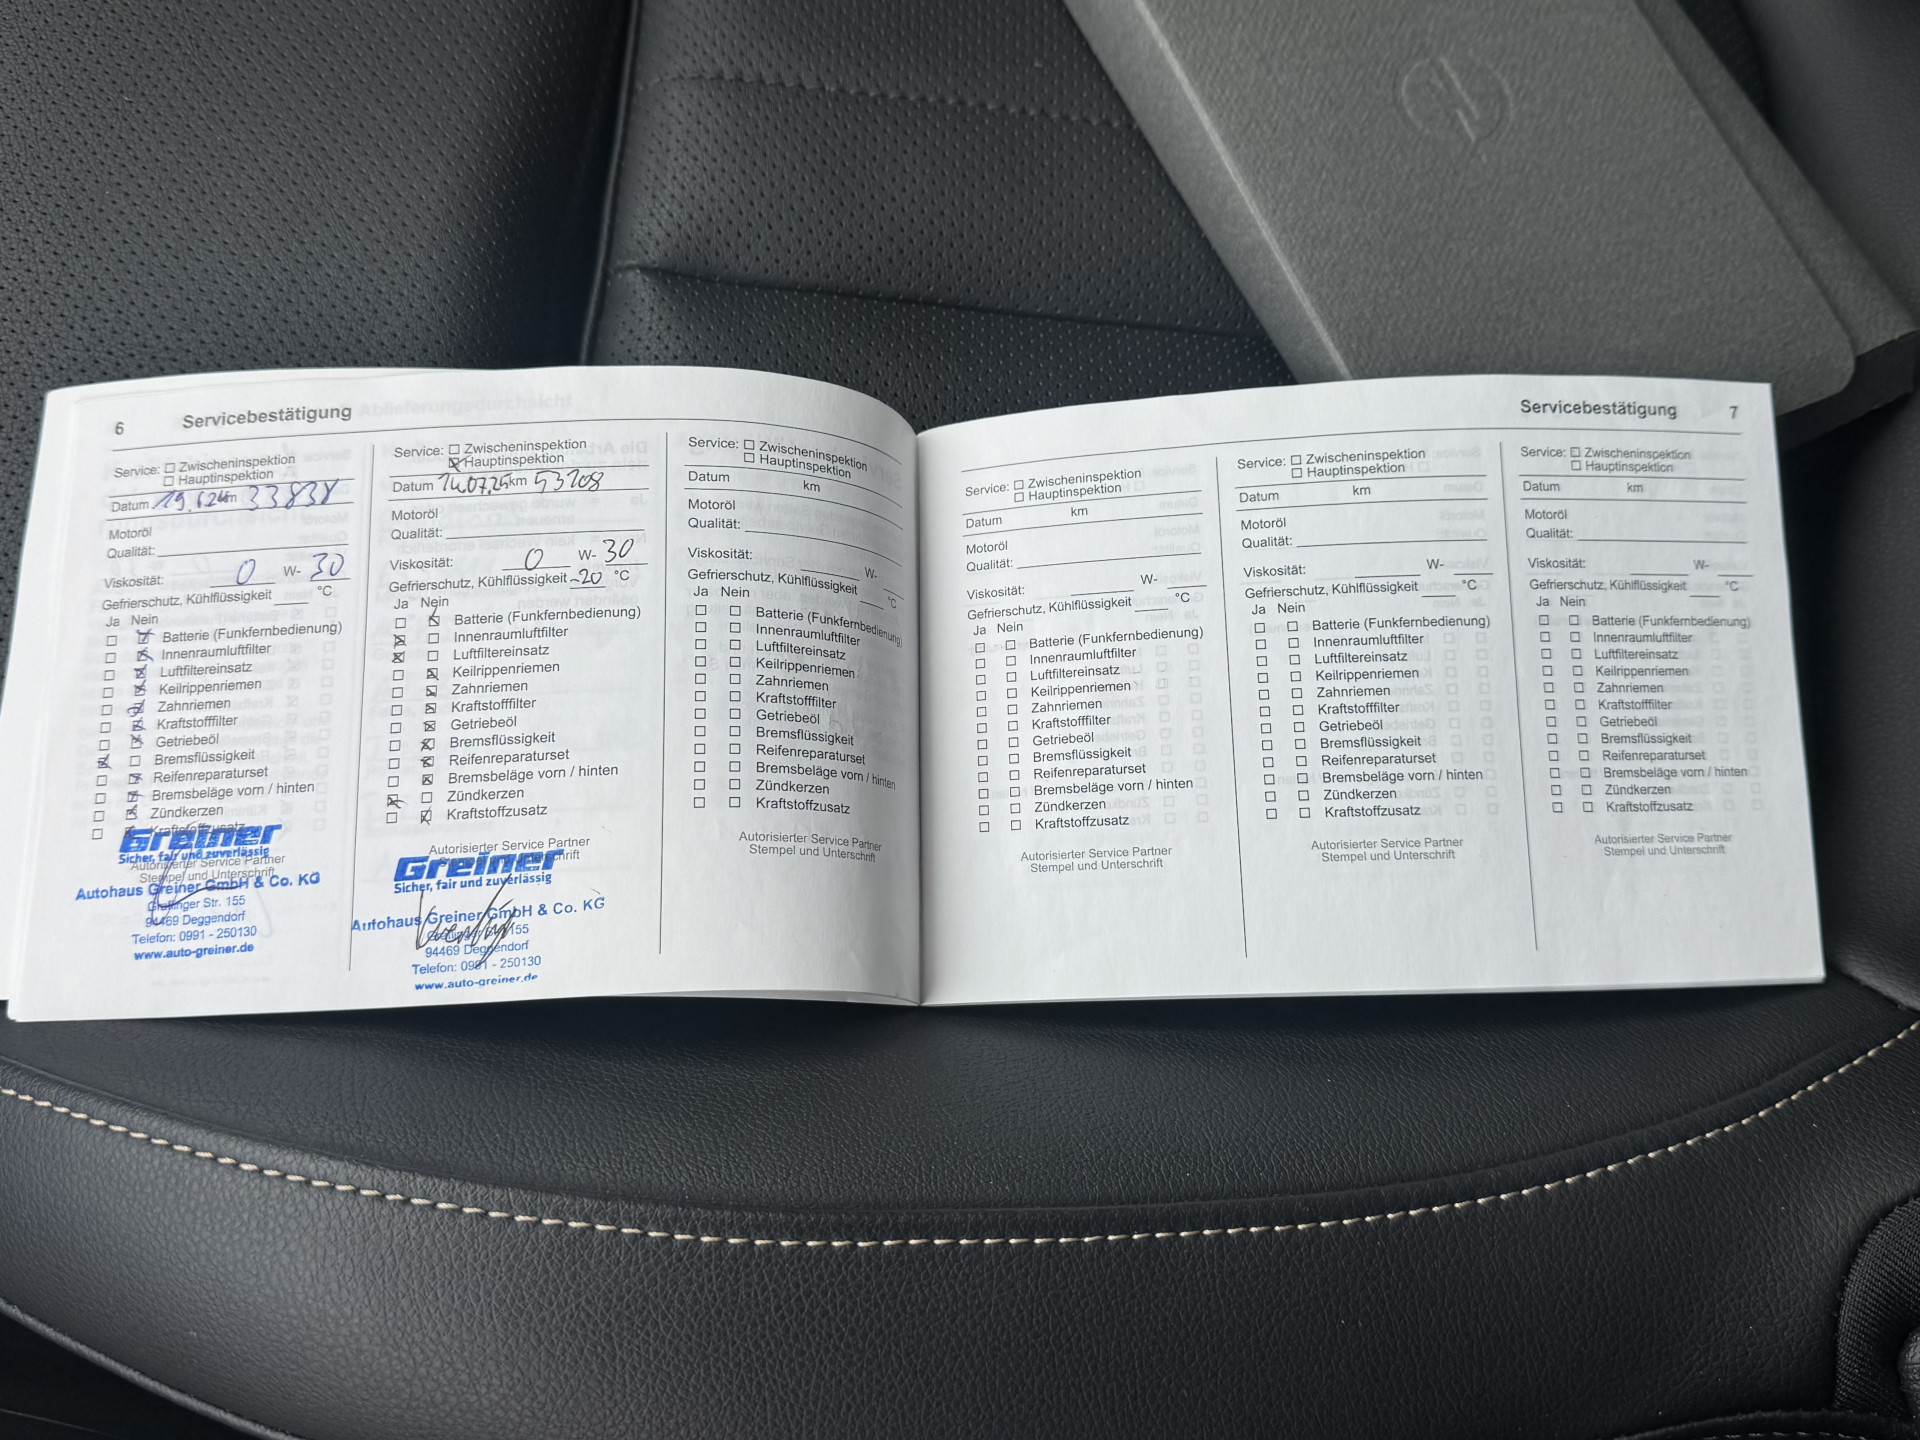 6 Servicebestätigung
Service: Zwischeninspektion
Hauptinspektion
Datum 19.6.24 km 33838
Motoröl
Qualität:
Viskosität: 0 W- 30
Gefrierschutz, Kühlflüssigkeit °C
Ja Nein
Batterie (Funkfernbedienung)
Innenraumluftfilter
Luftfiltereinsatz
Keilrippenriemen
Zahnriemen
Kraftstofffilter
Getriebeöl
Bremsflüssigkeit
Reifenreparaturset
Bremsbeläge vorn / hinten
Zündkerzen
Kraftstoffzusatz
Greiner
Sicher, fair und zuverlässig
Autorisierter Service Partner
Stempel und Unterschrift
Autohaus Greiner GmbH & Co. KG
Graflinger Str. 155
94469 Deggendorf
Telefon: 0991 - 250130
www.auto-greiner.de
Service: Zwischeninspektion
Hauptinspektion
Datum 14.07.25 km 53208
Motoröl
Qualität:
Viskosität: 0 W- 30
Gefrierschutz, Kühlflüssigkeit -20 °C
Ja Nein
Batterie (Funkfernbedienung)
Innenraumluftfilter
Luftfiltereinsatz
Keilrippenriemen
Zahnriemen
Kraftstofffilter
Getriebeöl
Bremsflüssigkeit
Reifenreparaturset
Bremsbeläge vorn / hinten
Zündkerzen
Kraftstoffzusatz
Autorisierter Service Partner
Stempel und Unterschrift
Greiner
Sicher, fair und zuverlässig
Autohaus Greiner GmbH & Co. KG
Graflinger Str. 155
94469 Deggendorf
Telefon: 0991 - 250130
www.auto-greiner.de
Service: Zwischeninspektion
Hauptinspektion
Datum km
Motoröl
Qualität:
Viskosität: W-
Gefrierschutz, Kühlflüssigkeit °C
Ja Nein
Batterie (Funkfernbedienung)
Innenraumluftfilter
Luftfiltereinsatz
Keilrippenriemen
Zahnriemen
Kraftstofffilter
Getriebeöl
Bremsflüssigkeit
Reifenreparaturset
Bremsbeläge vorn / hinten
Zündkerzen
Kraftstoffzusatz
Autorisierter Service Partner
Stempel und Unterschrift
Servicebestätigung 7
Service: Zwischeninspektion
Hauptinspektion
Datum km
Motoröl
Qualität:
Viskosität: W-
Gefrierschutz, Kühlflüssigkeit °C
Ja Nein
Batterie (Funkfernbedienung)
Innenraumluftfilter
Luftfiltereinsatz
Keilrippenriemen
Zahnriemen
Kraftstofffilter
Getriebeöl
Bremsflüssigkeit
Reifenreparaturset
Bremsbeläge vorn / hinten
Zündkerzen
Kraftstoffzusatz
Autorisierter Service Partner
Stempel und Unterschrift
Service: Zwischeninspektion
Hauptinspektion
Datum km
Motoröl
Qualität:
Viskosität: W-
Gefrierschutz, Kühlflüssigkeit °C
Ja Nein
Batterie (Funkfernbedienung)
Innenraumluftfilter
Luftfiltereinsatz
Keilrippenriemen
Zahnriemen
Kraftstofffilter
Getriebeöl
Bremsflüssigkeit
Reifenreparaturset
Bremsbeläge vorn / hinten
Zündkerzen
Kraftstoffzusatz
Autorisierter Service Partner
Stempel und Unterschrift
Service: Zwischeninspektion
Hauptinspektion
Datum km
Motoröl
Qualität:
Viskosität: W-
Gefrierschutz, Kühlflüssigkeit °C
Ja Nein
Batterie (Funkfernbedienung)
Innenraumluftfilter
Luftfiltereinsatz
Keilrippenriemen
Zahnriemen
Kraftstofffilter
Getriebeöl
Bremsflüssigkeit
Reifenreparaturset
Bremsbeläge vorn / hinten
Zündkerzen
Kraftstoffzusatz
Autorisierter Service Partner
Stempel und Unterschrift